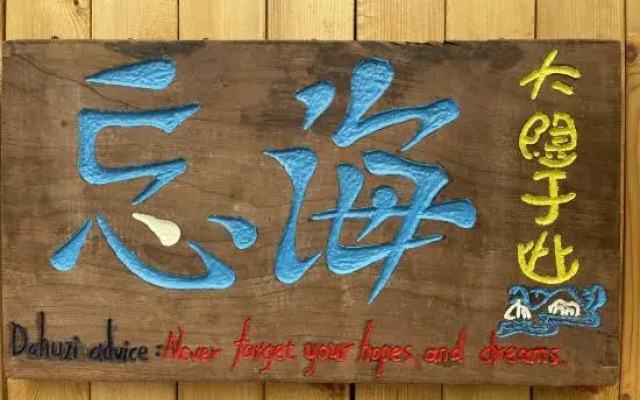 忘海
大隐于此
Dahuzi advice : Never forget your hopes and dreams.